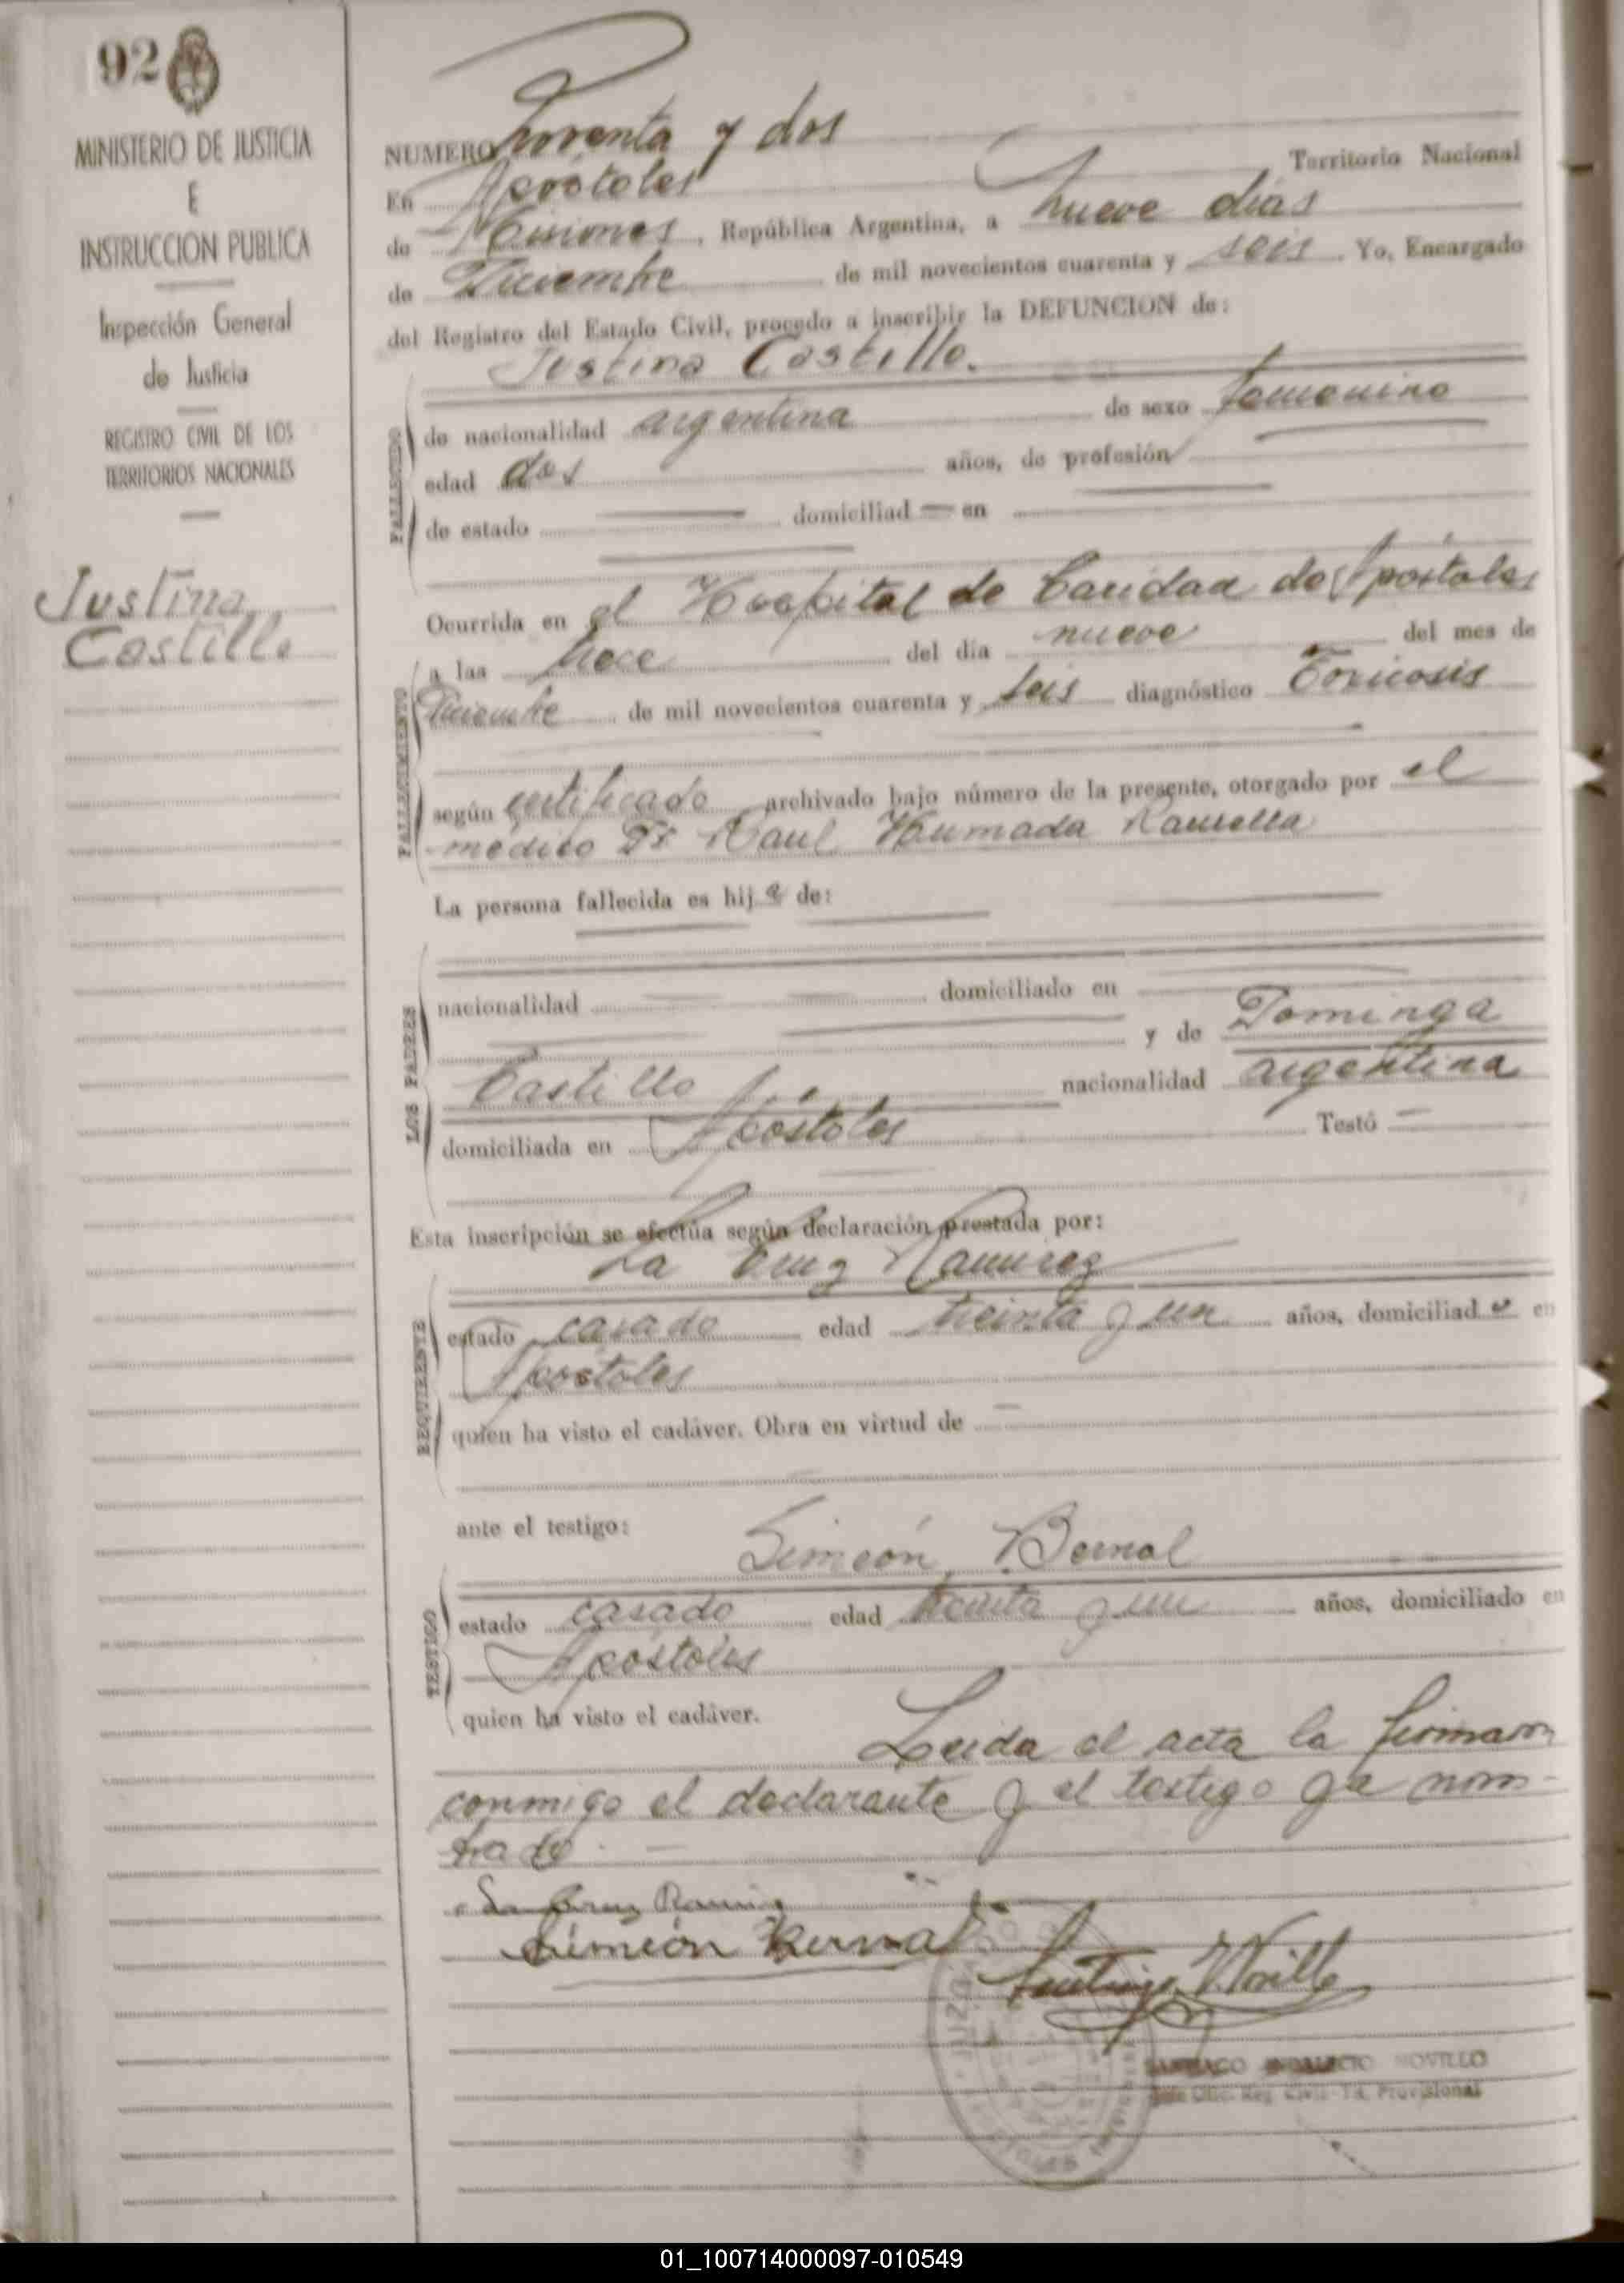 92
MINISTERIO DE JUSTICIA
E
INSTRUCCION PUBLICA
Inspección General
de Justicia
REGISTRO CIVIL DE LOS
TERRITORIOS NACIONALES
Justina
Castillo
NUMERO Noventa y dos
En Apóstoles Territorio Nacional
de Misiones, República Argentina, a nueve dias
de Diciembre de mil novecientos cuarenta y seis. Yo, Encargado
del Registro del Estado Civil, procedo a inscribir la DEFUNCION de:
Justina Castillo.
FALLECIDO
de nacionalidad argentina de sexo femenino
edad dos años, de profesión
de estado — domiciliad — en
Ocurrida en el Hospital de Caridad de Apóstoles
FALLECIMIENTO
a las trece del día nueve del mes de
Diciembre de mil novecientos cuarenta y seis diagnóstico Toxicosis
según certificado archivado bajo número de la presente, otorgado por el
médico Dr Raul Humada
La persona fallecida es hija de:
LOS PADRES
nacionalidad — domiciliado en —
y de Dominga
Castillo nacionalidad argentina
domiciliada en Apóstoles Testó —
Esta inscripción se efectúa según declaración prestada por:
La Cruz Ramirez
REQUIRENTE
estado casado edad treinta y un años, domiciliado en
Apóstoles
quien ha visto el cadáver. Obra en virtud de —
ante el testigo:
Simeón Bernal
TESTIGO
estado casado edad treinta y un años, domiciliado en
Apóstoles
quien ha visto el cadáver.
Leida el acta la firmaron
conmigo el declarante y el testigo ya nom-
brado.
La Cruz Ramirez
Simeón Bernal
Santiago Novillo
SANTIAGO INDALECIO NOVILLO
Reg. Civil Provisional
01_100714000097-010549